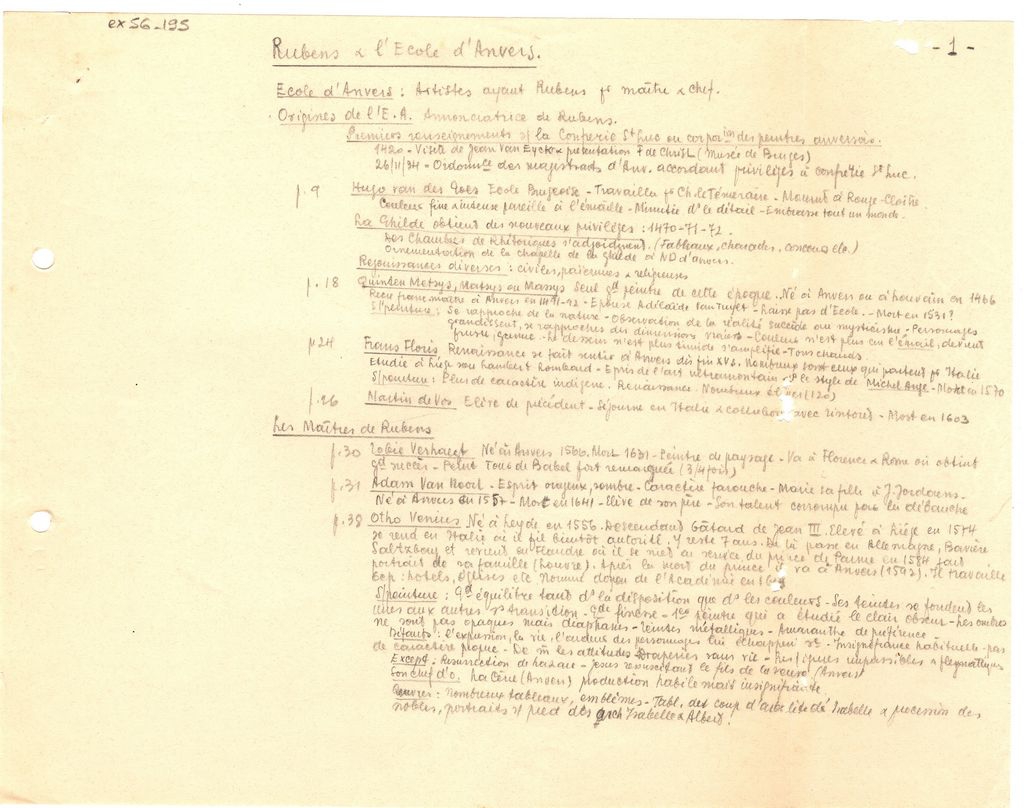 ex 56-195
- 1 -
Rubens & l'Ecole d'Anvers.
Ecole d'Anvers : Artistes ayant Rubens pr maître & chef.
Origines de l'E.A. Annonciatrice de Rubens.
Premiers renseignements s/ la Confrérie St Luc ou corporion des peintres anversois.
1420 - Visite de Jean Van Eyck & présentation de Christ (Musée de Bruges)
26/11/34 - Ordonnce des magistrats d'Anv. accordant privilèges à confrérie St Luc.
p. 9 Hugo van der Goes Ecole Brugeoise - Travailla pr Ch. le Téméraire - Mourut à Rouge-Cloître.
Couleur fine & intense pareille à l'émaille - Minutie ds le détail - Embrasse tout un monde.
La Ghilde obtient des nouveaux privilèges : 1470-71-72.
Des Chambres de Rhétoriques s'adjoignent. (Tableaux, charades, concours etc.)
Ornementation de la chapelle de la ghilde à ND d'Anvers.
Rejouissances diverses : civiles, païennes & religieuses
p. 18 Quinten Metsys, Matsys ou Massys Seul gd peintre de cette époque. Né à Anvers ou à Louvain en 1466
Reçu franc maître à Anvers en 1491-92 - Epouse Adélaïde Van Tuylt - Laisse pas d'Ecole. - Mort en 1531?
S/peinture : Se rapproche de la nature - Observation de la réalité succède au mysticisme - Personnages
grandissent, se rapproches des dimensions vraies - Couleur n'est plus cm l'émail, devient
Le dessin n'est plus timide s'amplifie - Tons chauds.
p 24 Frans Floris, Renaissance se fait sentir à Anvers dès fin XVs. Nombreux sont ceux qui partent pr Italie
Etudie à Liège sous Lambert Lombard - Epris de l'art ultramontain - le style de Michel Ange - Mort en 1570
S/peinture : Plus de caractère indigène. Renaissance. Nombreux élèves (120)
p. 26 Martin de Vos Elève de précédent - Séjourne en Italie & collabora avec Tintoret - Mort en 1603
Les Maîtres de Rubens
p. 30 Tobie Verhaegt Né à Anvers 1566. Mort 1631 - Peintre de paysage - Va à Florence & Rome où obtint
gd succès - Peint Tour de Babel fort remarquée (3/4 fois)
p. 31 Adam Van Noort - Esprit orageux, sombre - Caractère farouche - Marie sa fille à J. Jordaens.
Né à Anvers en 1557 - Mort en 1641 - Elève de son père - Son talent corrompu par la débauche
p. 38 Otho Venius Né à Leyde en 1556. Descendant bâtard de Jean III. Elevé à Liège en 1574
se rend en Italie où il fit bientôt autorité. Y reste 7 ans. De là passe en Allemagne, Bavière
Saltzbourg et revient en Flandre où il se met au service du prince de Parme en 1584 fait
portrait de sa famille (Louvre). Après la mort du prince il va à Anvers (1592). Il travaille
bcp : hotels, Eglises etc. Nommé doyen de l'Académie en
S/peinture : Gd équilibre tant ds la disposition que ds les couleurs - Ses teintes se fondent les
unes aux autres ss transition - gde finesse - 1er peintre qui a étudié le clair obscur - Les ombres
ne sont pas opaques mais diaphanes - Teintes métalliques - Amaranthe de préférence
Défauts : l'expression, la vie, l'ardeur des personnages lui échappent - Insignifiance habituelle - pas
de caractère propre - De m les attitudes - Draperies sans vie - Ses figures impassibles & flegmatiques
Except : Résurrection de Lazare - Jesus ressuscitant le fils de la veuve (Anvers)
Son chef d'o. La Cène (Anvers) production habile mais insignifiante.
Oeuvres : Nombreux tableaux, emblèmes - Tabl. des coup d'arbalète d'Isabelle & procession des
nobles, portraits s/ pied des arch Isabelle & Albert!